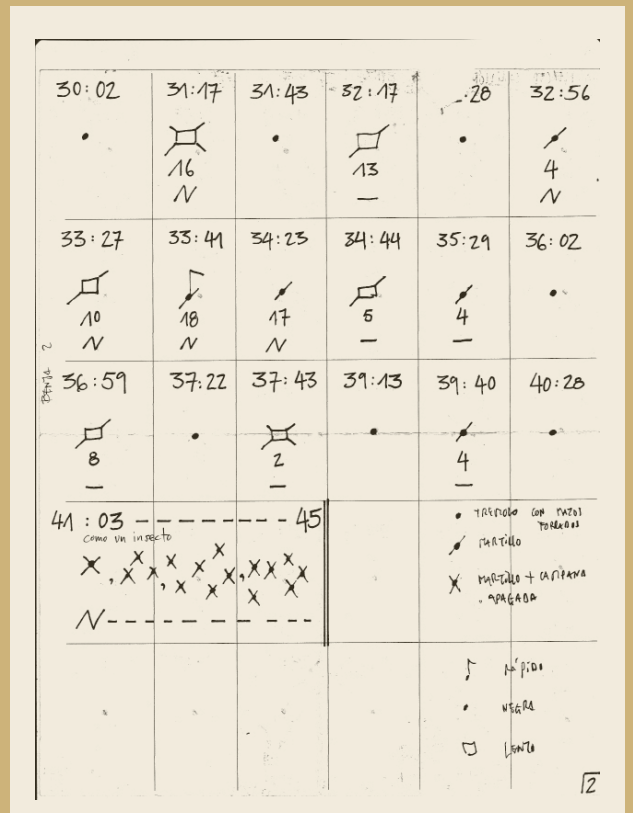 30:02 31:17 31:43 32:17 28 32:56
16 13 4
N — N
33:27 33:41 34:23 34:44 35:29 36:02
10 18 17 5 4
N N N — —
36:59 37:22 37:43 39:13 39:40 40:28
8 2 4
— — —
41:03 – – – – – – – 45
como un insecto
N – – – – – – – – – –
TREMOLO CON MAZOS
FORRADOS
MARTILLO
MARTILLO + CAMPANA
APAGADA
RÁPIDO
NEGRA
LENTO
2